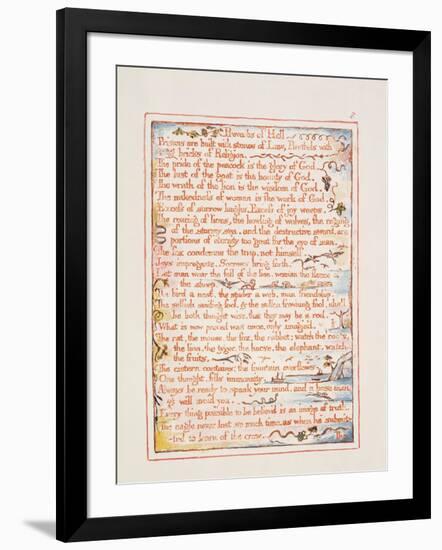 8
Proverbs of Hell
Prisons are built with stones of Law, Brothels with
bricks of Religion.
The pride of the peacock is the glory of God.
The lust of the goat is the bounty of God.
The wrath of the lion is the wisdom of God.
The nakedness of woman is the work of God.
Excess of sorrow laughs. Excess of joy weeps.
The roaring of lions, the howling of wolves, the raging
of the stormy sea, and the destructive sword, are
portions of eternity too great for the eye of man.
The fox condemns the trap, not himself.
Joys impregnate. Sorrows bring forth.
Let man wear the fell of the lion, woman the fleece of
the sheep.
The bird a nest, the spider a web, man friendship.
The selfish smiling fool, & the sullen frowning fool, shall
be both thought wise, that they may be a rod.
What is now proved was once, only imagin'd.
The rat, the mouse, the fox, the rabbit; watch the roots,
the lion, the tyger, the horse, the elephant, watch
the fruits.
The cistern contains; the fountain overflows
One thought, fills immensity.
Always be ready to speak your mind, and a base man
will avoid you.
Every thing possible to be believ'd is an image of truth.
The eagle never lost so much time, as when he submit-
-ted to learn of the crow.
The